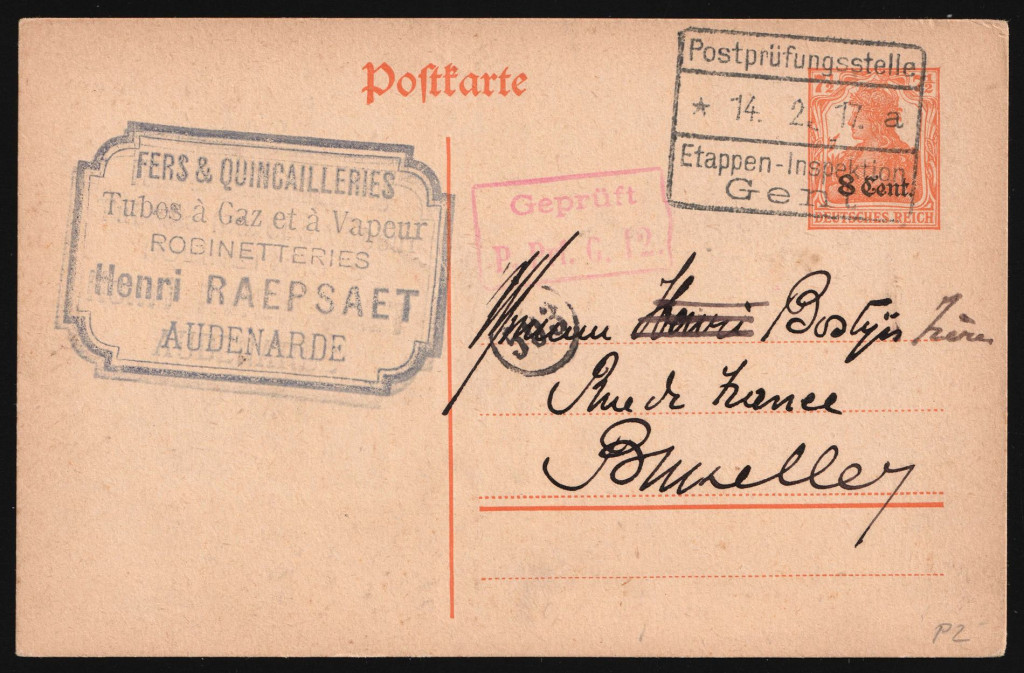 Postkarte
Postprüfungsstelle
* 14. 2. 17. a
Etappen-Inspektion
Gent
7½ 7½
8 Cent.
DEUTSCHES REICH
FERS & QUINCAILLERIES
Tubes à Gaz et à Vapeur
ROBINETTERIES
Henri RAEPSAET
AUDENARDE
Geprüft
P. G. 12.
Henri Bostyn Frères
Rue de France
Bruxelles
P2